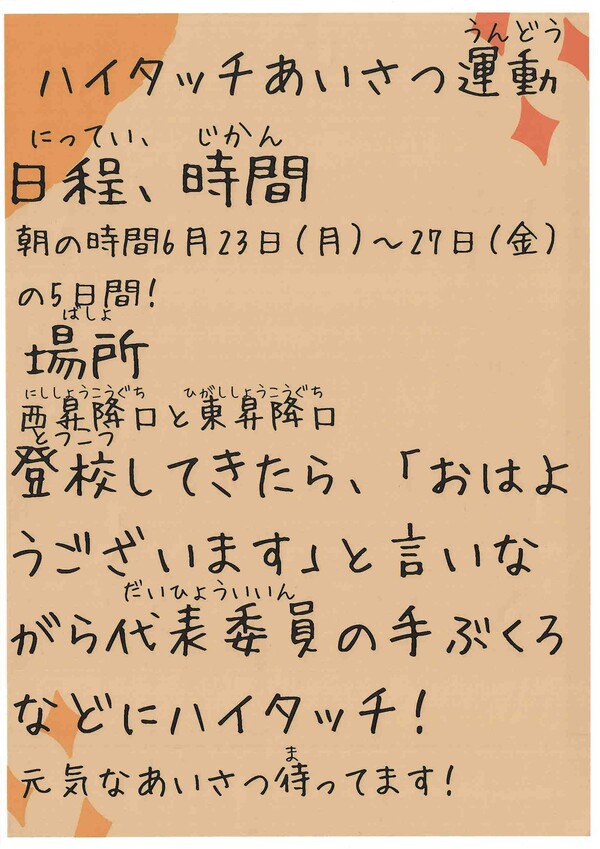 うんどう
ハイタッチあいさつ運動
にってい、 じかん
日程、時間
朝の時間6月23日(月)～27日(金)
の5日間!
ばしょ
場所
にししょうこうぐち ひがししょうこうぐち
西昇降口と東昇降口
とうこう
登校してきたら、「おはよ
うございます」と言いな
だいひょういいん
がら代表委員の手ぶくろ
などにハイタッチ!
ま
元気なあいさつ待ってます!